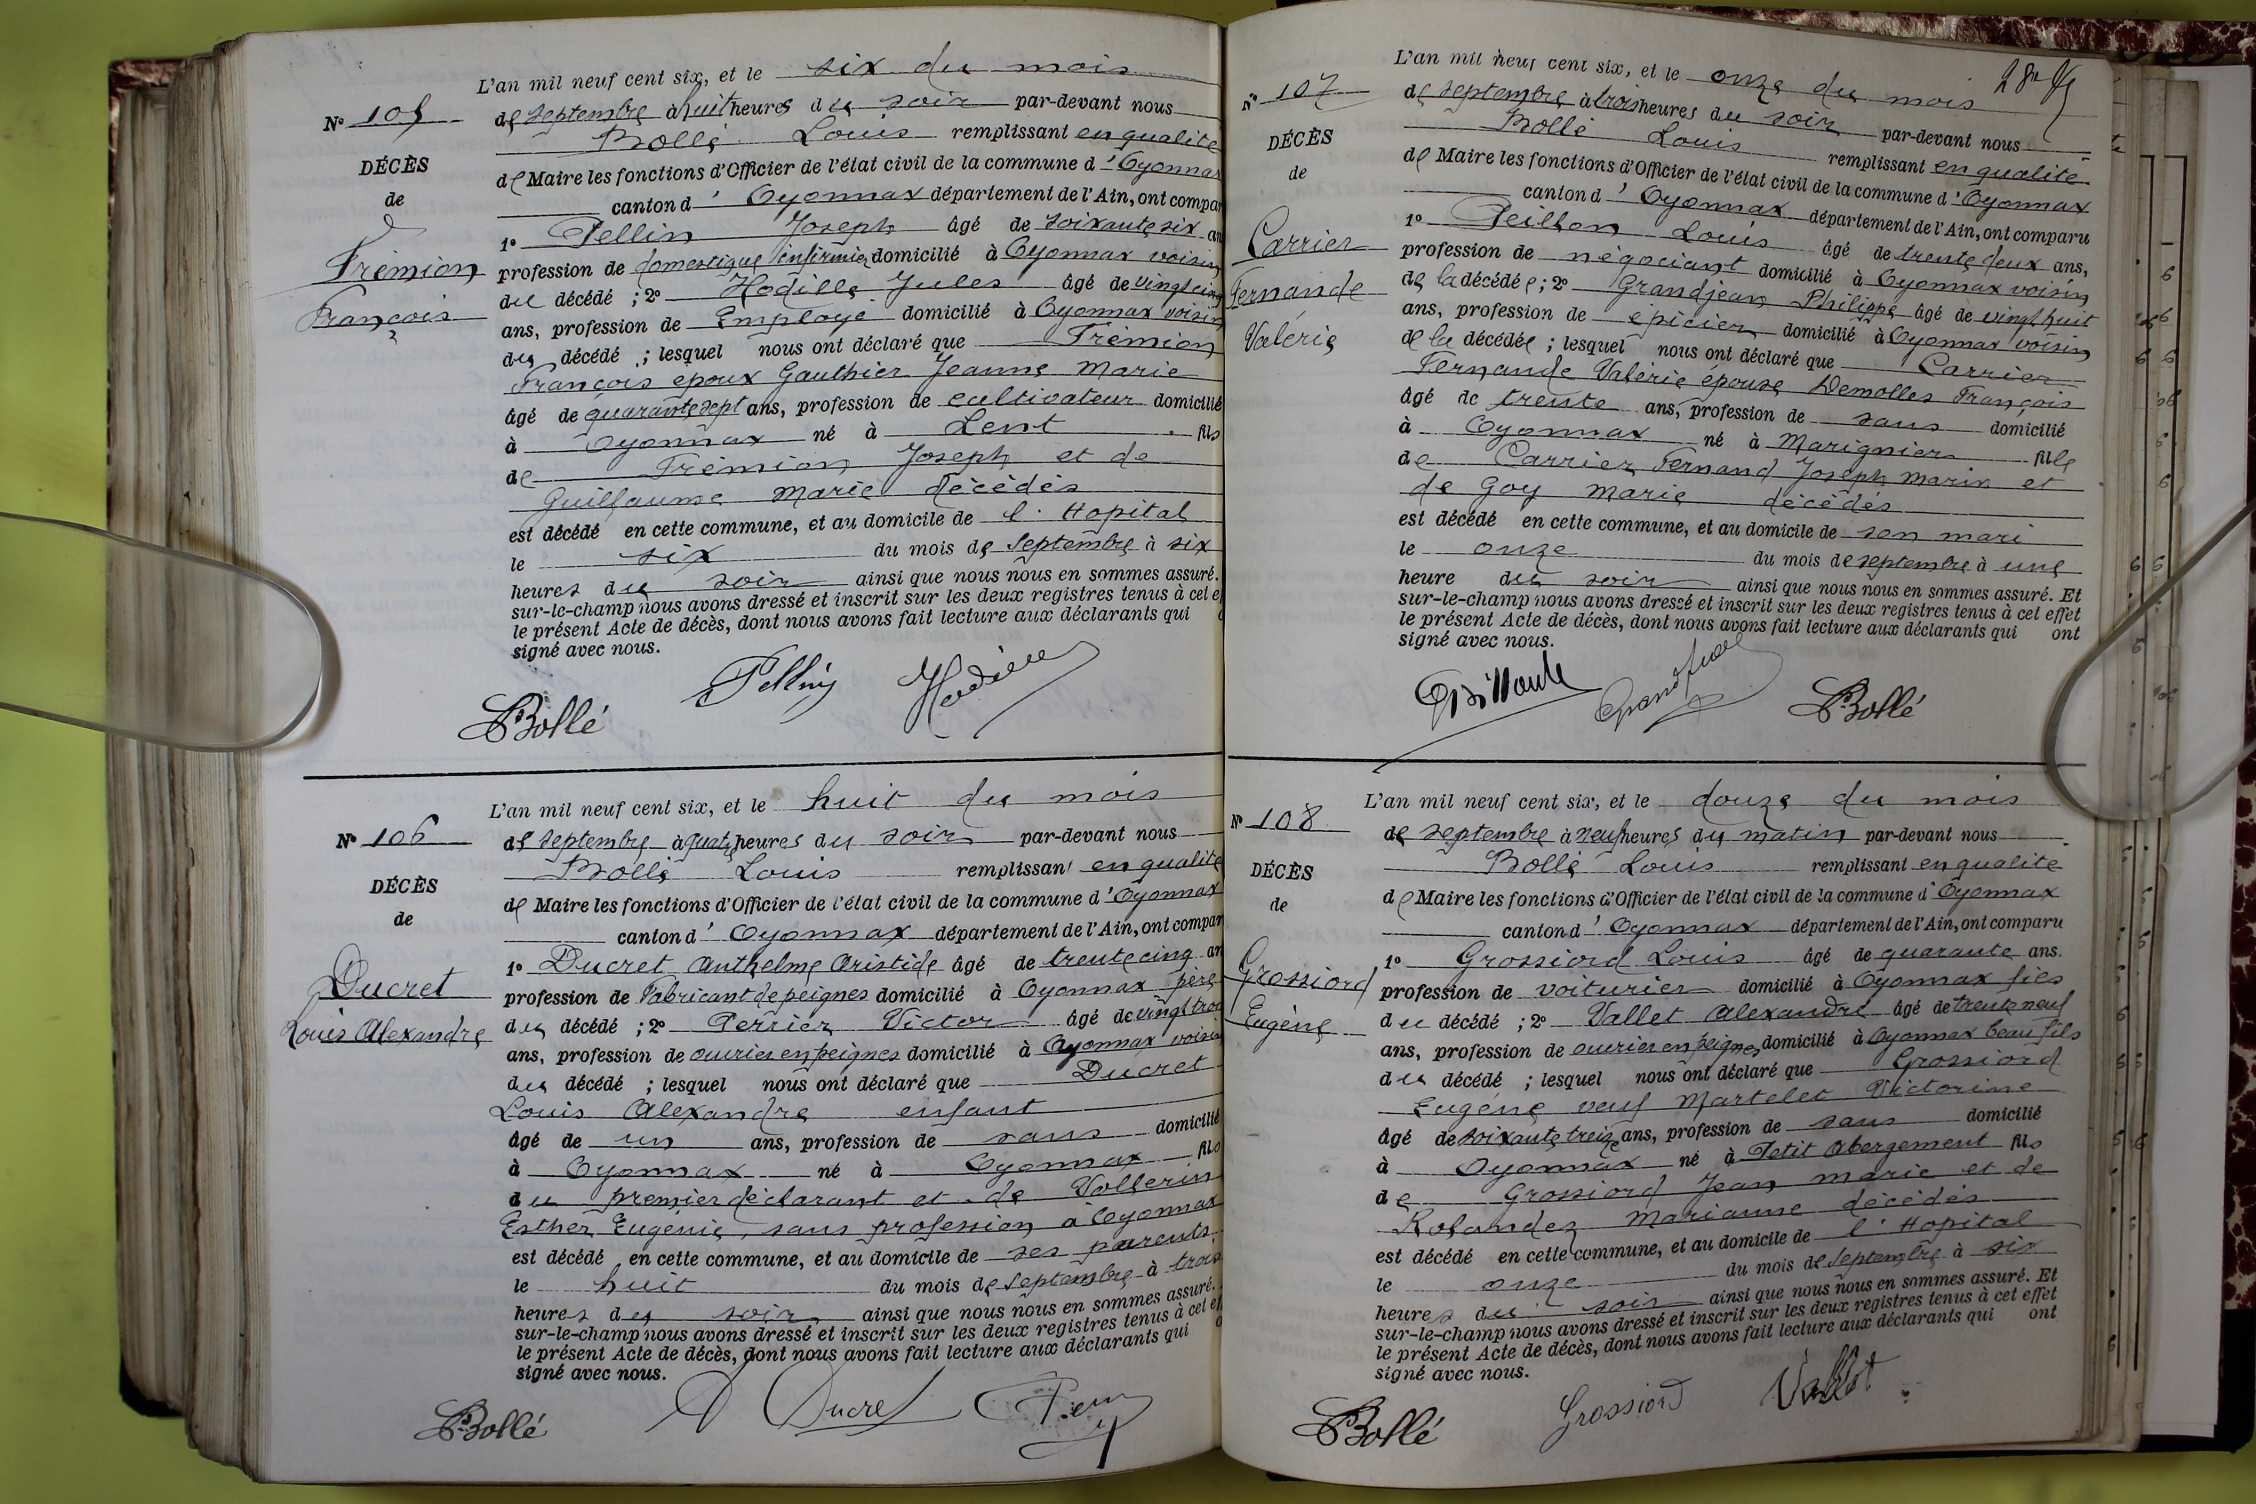 L'an mil neuf cent six, et le six du mois
N° 105
de septembre à huit heures du soir par-devant nous
Bollé Louis remplissant en qualité
DÉCÈS
de Maire les fonctions d'Officier de l'état civil de la commune d'Oyonnax
de
canton d'Oyonnax département de l'Ain, ont compar
1° Pellin Joseph âgé de soixante six an
Frémion
profession de domestique infirmier domicilié à Oyonnax voisin
François
du décédé ; 2° Hodille Jules âgé de vingt cinq
ans, profession de Employé domicilié à Oyonnax voisin
du décédé ; lesquel nous ont déclaré que Frémion
François époux Gauthier Jeanne Marie
âgé de quarante sept ans, profession de cultivateur domicilié
à Oyonnax né à Lent fils
de Frémion Joseph et de
Guillaume Marie décédés
est décédé en cette commune, et au domicile de l'Hopital
le six du mois de Septembre à six
heures du soir ainsi que nous nous en sommes assuré.
sur-le-champ nous avons dressé et inscrit sur les deux registres tenus à cet e
le présent Acte de décès, dont nous avons fait lecture aux déclarants qui
signé avec nous.
Pellin Hodille
Bollé
L'an mil neuf cent six, et le huit du mois
N° 106
de septembre à quatre heures du soir par-devant nous
Bollé Louis remplissant en qualité
DÉCÈS
de Maire les fonctions d'Officier de l'état civil de la commune d'Oyonnax
de
canton d'Oyonnax département de l'Ain, ont compar
1° Ducret Anthelme Aristide âgé de trente cinq an
Ducret
profession de Fabricant de peignes domicilié à Oyonnax père
Louis Alexandre
du décédé ; 2° Perrier Victor âgé de vingt trois
ans, profession de ouvrier en peignes domicilié à Oyonnax voisin
du décédé ; lesquel nous ont déclaré que Ducret
Louis Alexandre enfant
âgé de un ans, profession de sans domicilié
à Oyonnax né à Oyonnax fils
du premier déclarant et de Vollerin
Esther Eugénie, sans profession à Oyonnax
est décédé en cette commune, et au domicile de ses parents
le huit du mois de septembre à trois
heures du soir ainsi que nous nous en sommes assuré.
sur-le-champ nous avons dressé et inscrit sur les deux registres tenus à cet ef
le présent Acte de décès, dont nous avons fait lecture aux déclarants qui
signé avec nous.
Bollé Ducret
L'an mil neuf cent six, et le onze du mois
N° 107
de septembre à trois heures du soir par-devant nous
Bollé Louis remplissant en qualité
DÉCÈS
de Maire les fonctions d'Officier de l'état civil de la commune d'Oyonnax
de
canton d'Oyonnax département de l'Ain, ont comparu
1° Peillon Louis âgé de trente deux ans,
Carrier
profession de négociant domicilié à Oyonnax voisin
Fernande
de la décédée ; 2° Grandjean Philippe âgé de vingt huit
ans, profession de épicier domicilié à Oyonnax voisin
Valérie
de la décédée ; lesquel nous ont déclaré que Carrier
Fernande Valérie épouse Demolles François
âgé de trente ans, profession de sans domicilié
à Oyonnax né à Marignier fille
de Carrier Fernand Joseph Marin et
de Goy Marie décédés
est décédé en cette commune, et au domicile de son mari
le onze du mois de septembre à une
heure du soir ainsi que nous nous en sommes assuré. Et
sur-le-champ nous avons dressé et inscrit sur les deux registres tenus à cet effet
le présent Acte de décès, dont nous avons fait lecture aux déclarants qui ont
signé avec nous.
Grandjean Bollé
L'an mil neuf cent six, et le douze du mois
N° 108
de septembre à neuf heures du matin par-devant nous
Bollé Louis remplissant en qualité
DÉCÈS
de Maire les fonctions d'Officier de l'état civil de la commune d'Oyonnax
de
canton d'Oyonnax département de l'Ain, ont comparu
1° Grossiord Louis âgé de quarante ans.
Grossiord
profession de voiturier domicilié à Oyonnax fils
Eugène
du décédé ; 2° Vallet Alexandre âgé de trente neuf
ans, profession de ouvrier en peignes domicilié à Oyonnax beau fils
du décédé ; lesquel nous ont déclaré que Grossiord
Eugène veuf Martelet Victorine
âgé de soixante treize ans, profession de sans domicilié
à Oyonnax né à Petit Abergement fils
de Grossiord Jean Marie et de
Rolandez Marianne décédés
est décédé en cette commune, et au domicile de l'Hopital
le onze du mois de Septembre à six
heures du soir ainsi que nous nous en sommes assuré. Et
sur-le-champ nous avons dressé et inscrit sur les deux registres tenus à cet effet
le présent Acte de décès, dont nous avons fait lecture aux déclarants qui ont
signé avec nous.
Bollé Grossiord Vallet